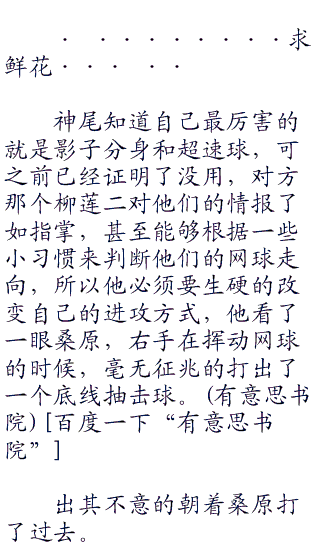 · · · · · · · · · ·求
鲜花· · · · ·
神尾知道自己最厉害的
就是影子分身和超速球，可
之前已经证明了没用，对方
那个柳莲二对他们的情报了
如指掌，甚至能够根据一些
小习惯来判断他们的网球走
向，所以他必须要生硬的改
变自己的进攻方式，他看了
一眼桑原，右手在挥动网球
的时候，毫无征兆的打出了
一个底线抽击球。(有意思书
院)[百度一下“有意思书
院”]
出其不意的朝着桑原打
了过去。